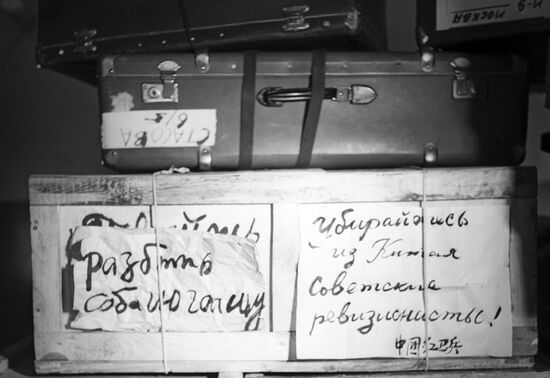 М-9
МОСКВА
СТАСОВА
разбить
собачью голову
Убирайтесь
из Китая
советские
ревизионисты!
中国红卫兵